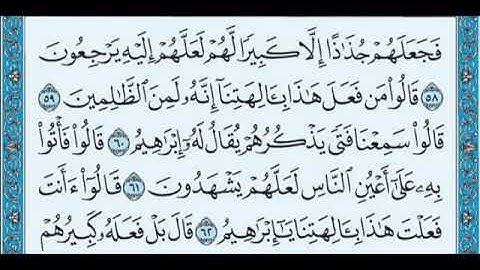 فَجَعَلَهُمْ جُذَٰذًا إِلَّا كَبِيرًا لَّهُمْ لَعَلَّهُمْ إِلَيْهِ يَرْجِعُونَ
٥٨ قَالُوا۟ مَن فَعَلَ هَٰذَا بِـَٔالِهَتِنَآ إِنَّهُۥ لَمِنَ ٱلظَّٰلِمِينَ ٥٩
قَالُوا۟ سَمِعْنَا فَتًى يَذْكُرُهُمْ يُقَالُ لَهُۥٓ إِبْرَٰهِيمُ ٦٠ قَالُوا۟ فَأْتُوا۟
بِهِۦ عَلَىٰٓ أَعْيُنِ ٱلنَّاسِ لَعَلَّهُمْ يَشْهَدُونَ ٦١ قَالُوٓا۟ ءَأَنتَ
فَعَلْتَ هَٰذَا بِـَٔالِهَتِنَا يَٰٓإِبْرَٰهِيمُ ٦٢ قَالَ بَلْ فَعَلَهُۥ كَبِيرُهُمْ